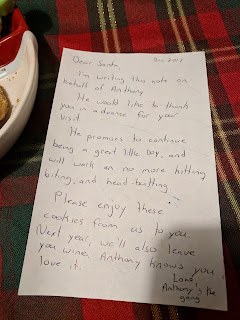 Dear Santa Dec 2017
I'm writing this note on
behalf of Anthony
He would like to thank
you in advance for your
visit.
He promises to continue
being a great little boy, and
will work on no more hitting
biting, and head-butting.
Please enjoy these
cookies from us to you
Next year, we'll also leave
you wine, Anthony knows you
love it.
Love
Anthony & the
gang